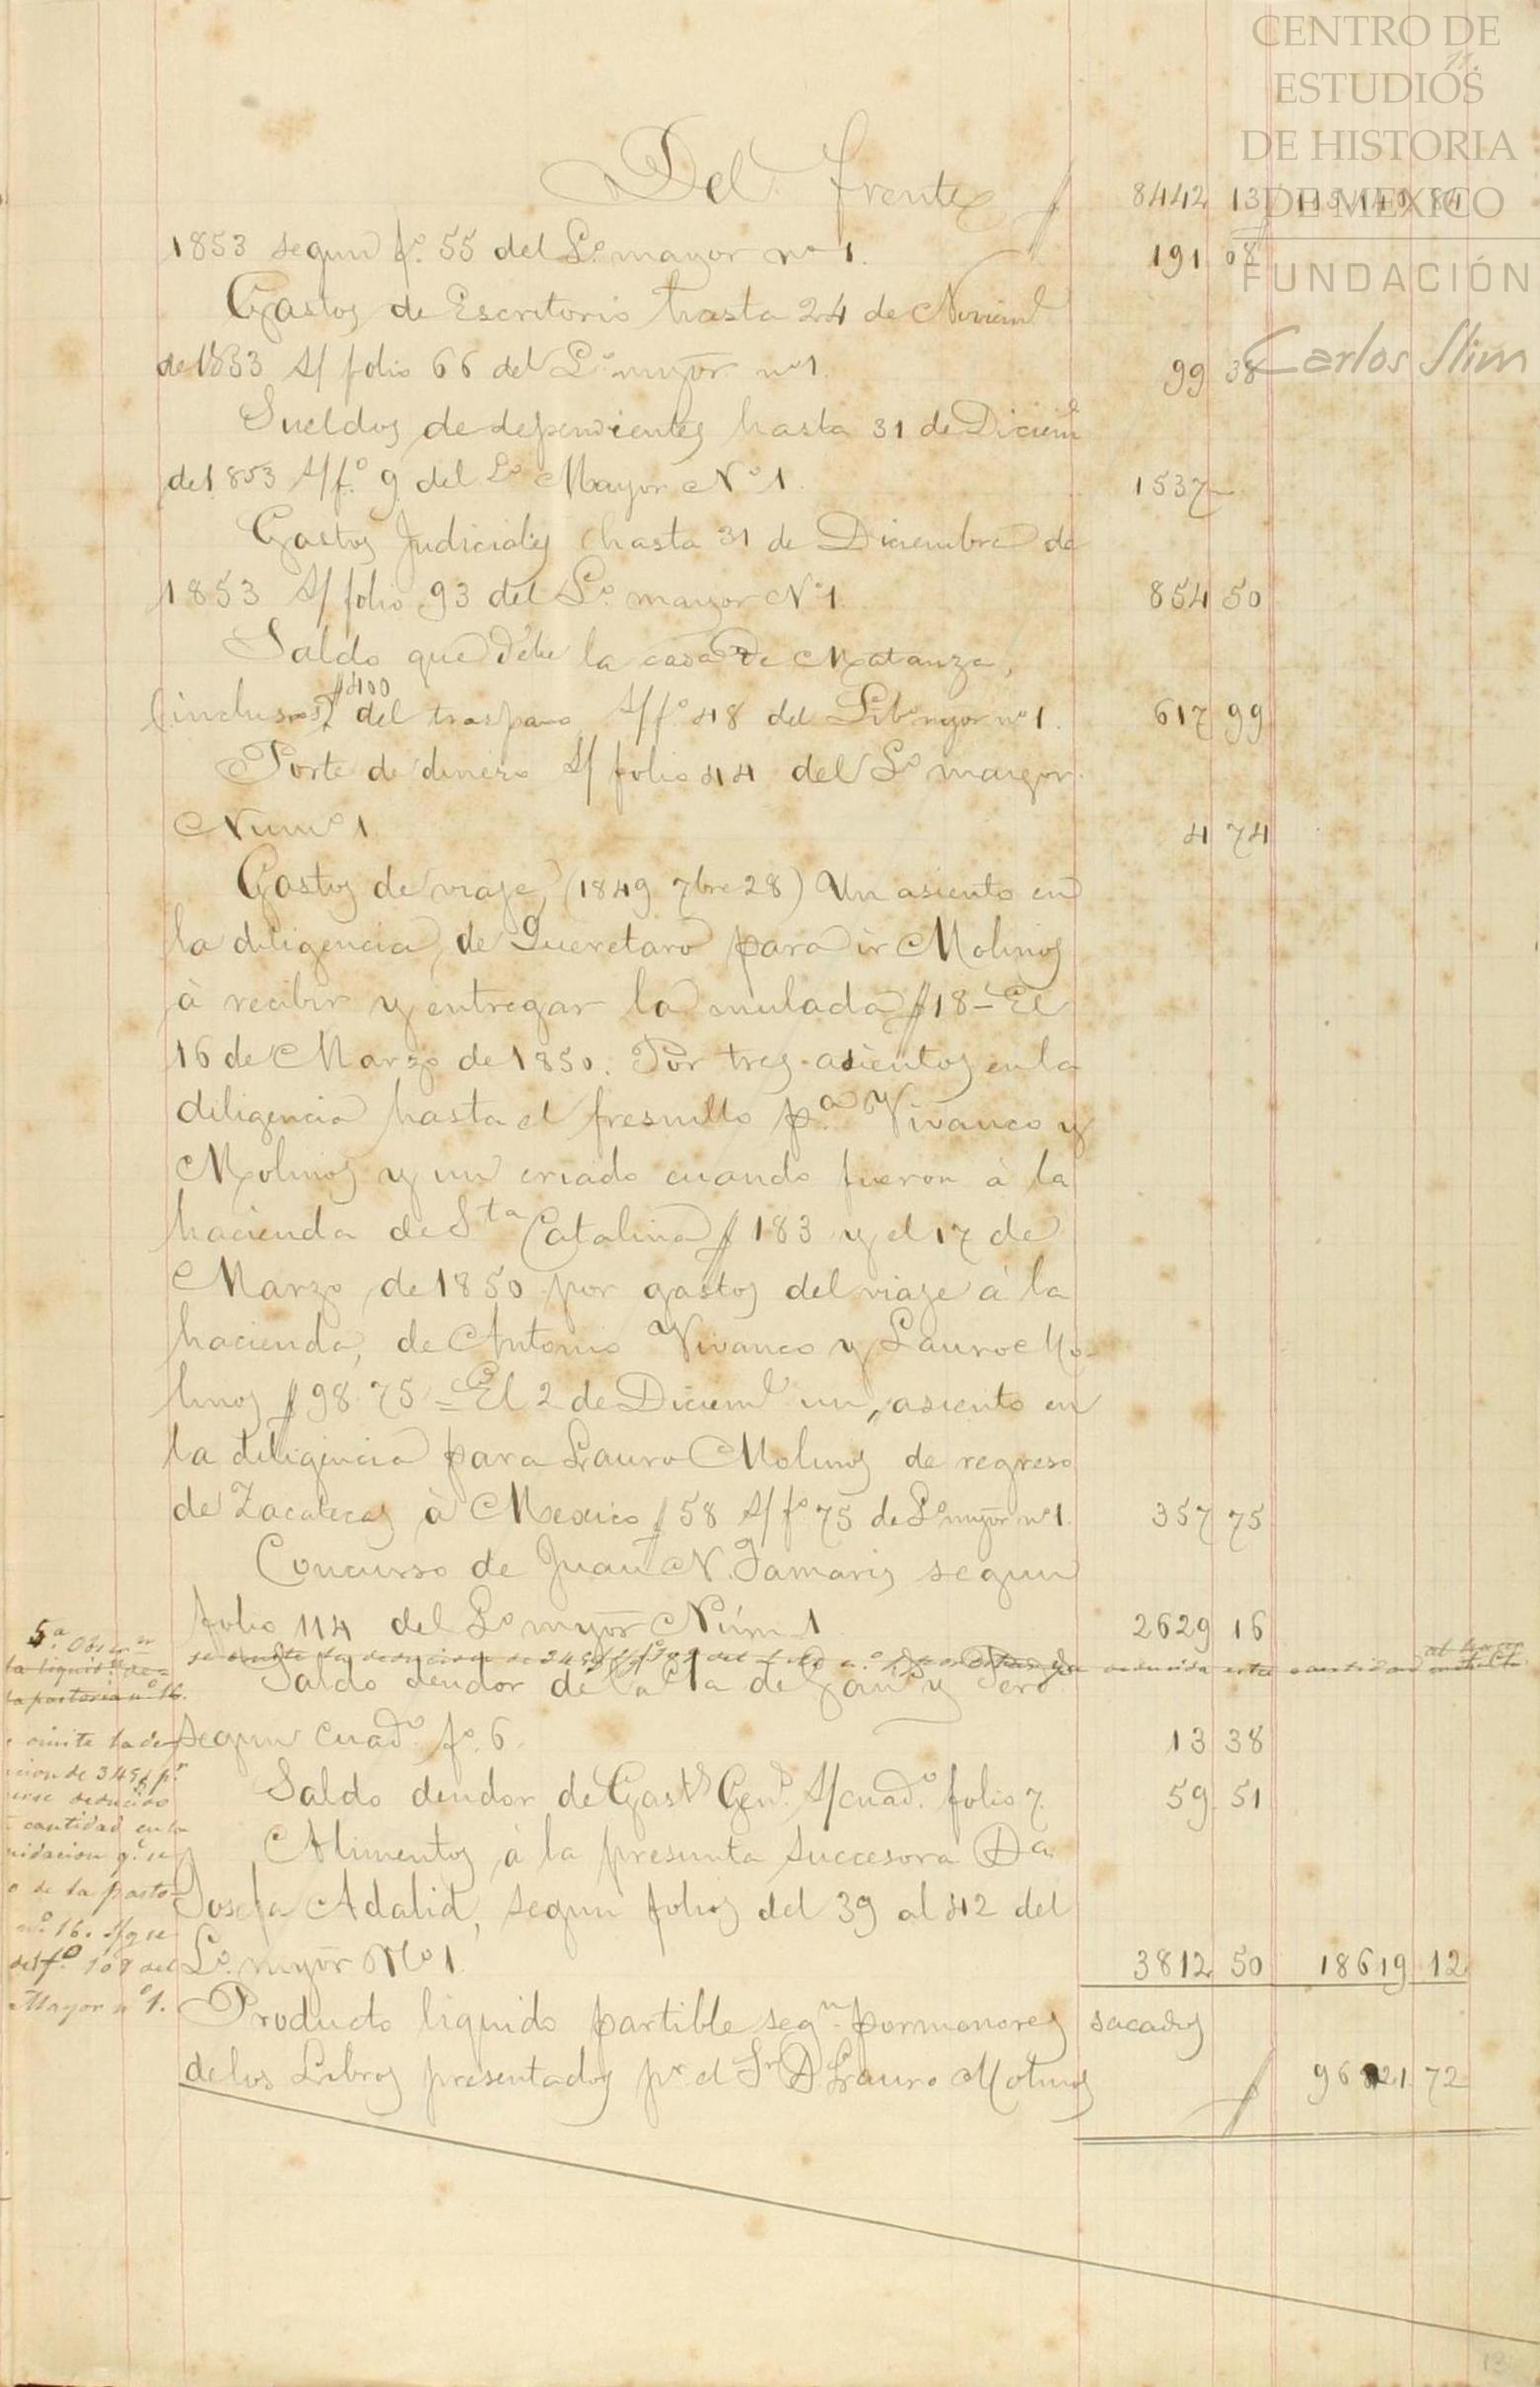 CENTRO DE
ESTUDIOS
DE HISTORIA
DE MEXICO
FUNDACIÓN
Carlos Slim
Del frente $ 8442 13
1853 segun fo. 55 del Lo. mayor no 1. 191 08
Gastos de Escritorio hasta 24 de Noviem
de 1853 S/ folio 66 del Lo. myor. no 1. 99 38
Sueldos de dependientes hasta 31 de Diciem
de 1853 S/ fo. 9 del Lo Mayor No 1. 1537
Gastos Judiciales hasta 31 de Diciembre de
1853 S/ folio 93 del Lo. mayor No 1. 854 50
Saldo que debe la casa de Matanza,
(inclusos $400 del traspaso S/ fo. 48 del Libo myor no 1. 617 99
Porte de dinero S/ folio 44 del Lo mayor
Numo 1 4 74
Gastos de viaje, (1849 7bre 28) Un asiento en
la diligencia de Queretaro para ir Molinos
à recibir y entregar la mulada $18 - El
16 de Marzo de 1850. Por tres asientos en la
diligencia hasta el fresnillo pa. Vivanco y
Molinos y un criado cuando fueron à la
hacienda de Sta Catalina $183 y el 17 de
Marzo de 1850 por gastos del viaje à la
hacienda, de Antonio Vivanco y Lauro Mo-
linos $98 75 = El 2 de Diciem un asiento en
la diligencia para Lauro Molinos de regreso
de Zacatecas à Mexico $58 S/ fo 75 de Lo myor no 1. 357 75
Concurso de Juan N. Tamaris segun
folio 114 del Lo myor Núm 1 2629 16
Saldo deudor de la Cta de Gans y Perd
segun cuado. fo. 6. 13 38
Saldo deudor de Gasts Gens. S/ cuado. folio 7. 59 51
Alimentos à la presunta succesora Da.
Josefa Adalid, segun folios del 39 al 42 del
Lo. myor No 1. 3812 50 18619 12
Producto liquido partible segn. pormenores sacados
de los Libros presentados pr. el Sr D. Lauro Molinos $ 96 21 72
5a. Obsn
la liquidn de
la partoria no. 16.
omite la de-
cion de 349
deducido
cantidad en la
uidacion qe. se
o de la parto-
no. 16. S/ q se
del fo. 109 del
Mayor no 1.
13